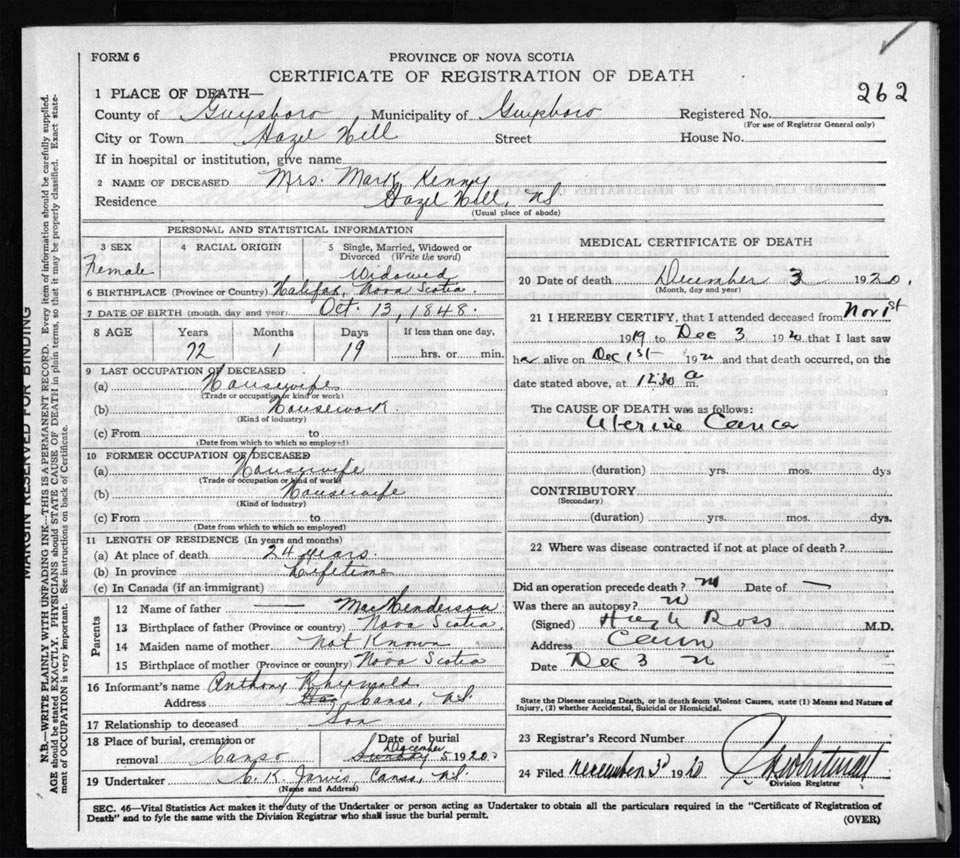 FORM 6
PROVINCE OF NOVA SCOTIA
CERTIFICATE OF REGISTRATION OF DEATH
262
1 PLACE OF DEATH—
County of Guysboro Municipality of Guysboro Registered No.
(For use of Registrar General only)
City or Town Hazel Hill Street House No.
If in hospital or institution, give name
2 NAME OF DECEASED Mrs. Mark Kenney
Residence Hazel Hill, N.S.
(Usual place of abode)
PERSONAL AND STATISTICAL INFORMATION
3 SEX 4 RACIAL ORIGIN 5 Single, Married, Widowed or Divorced (Write the word)
Female Widowed
6 BIRTHPLACE (Province or Country) Halifax, Nova Scotia.
7 DATE OF BIRTH (month, day and year) Oct. 13, 1848.
8 AGE Years Months Days If less than one day,
72 1 19 hrs. or min.
9 LAST OCCUPATION OF DECEASED
(a) Housewife
(Trade or occupation or kind or work)
(b) Housework.
(Kind of industry)
(c) From to
(Date from which to which so employed)
10 FORMER OCCUPATION OF DECEASED
(a) Housewife
(Trade or occupation or kind of work)
(b) Housewife
(Kind of industry)
(c) From to
(Date from which to which so employed)
11 LENGTH OF RESIDENCE (In years and months)
(a) At place of death 24 years.
(b) In province Lifetime
(c) In Canada (if an immigrant)
Parents
12 Name of father — MacHenderson
13 Birthplace of father (Province or country) Nova Scotia,
14 Maiden name of mother Not Known
15 Birthplace of mother (Province or country) Nova Scotia
16 Informant's name Anthony
Address Canso, N.S.
17 Relationship to deceased Son
18 Place of burial, cremation or removal Canso
Date of burial
December
Sunday 5 1920
19 Undertaker C. K. Jarvis, Canso, N.S.
(Name and Address)
MEDICAL CERTIFICATE OF DEATH
20 Date of death December 3 1920.
(Month, day and year)
21 I HEREBY CERTIFY, that I attended deceased from Nov 1st
1919 to Dec 3 1920 that I last saw
her alive on Dec 1st 192 and that death occurred, on the
date stated above, at 12.30 a m.
The CAUSE OF DEATH was as follows:
Uterine Cancer
(duration) yrs. mos. dys
CONTRIBUTORY
(Secondary)
(duration) yrs. mos. dys.
22 Where was disease contracted if not at place of death?
Did an operation precede death? no Date of —
Was there an autopsy? no
(Signed) Hugh Ross M.D.
Address Canso
Date Dec 3
State the Disease causing Death, or in death from Violent Causes, state (1) Means and Nature of Injury, (2) whether Accidental, Suicidal or Homicidal.
23 Registrar's Record Number
24 Filed December 3d 1920
Division Registrar
SEC. 46—Vital Statistics Act makes it the duty of the Undertaker or person acting as Undertaker to obtain all the particulars required in the "Certificate of Registration of
Death" and to fyle the same with the Division Registrar who shall issue the burial permit.
(OVER)
MARGIN RESERVED FOR BINDING
N.B.—WRITE PLAINLY WITH UNFADING INK—THIS IS A PERMANENT RECORD. Every item of information should be carefully supplied.
AGE should be stated EXACTLY. PHYSICIANS should STATE CAUSE OF DEATH in plain terms, so that it may be properly classified. Exact state-
ment of OCCUPATION is very important. See instructions on back of Certificate.